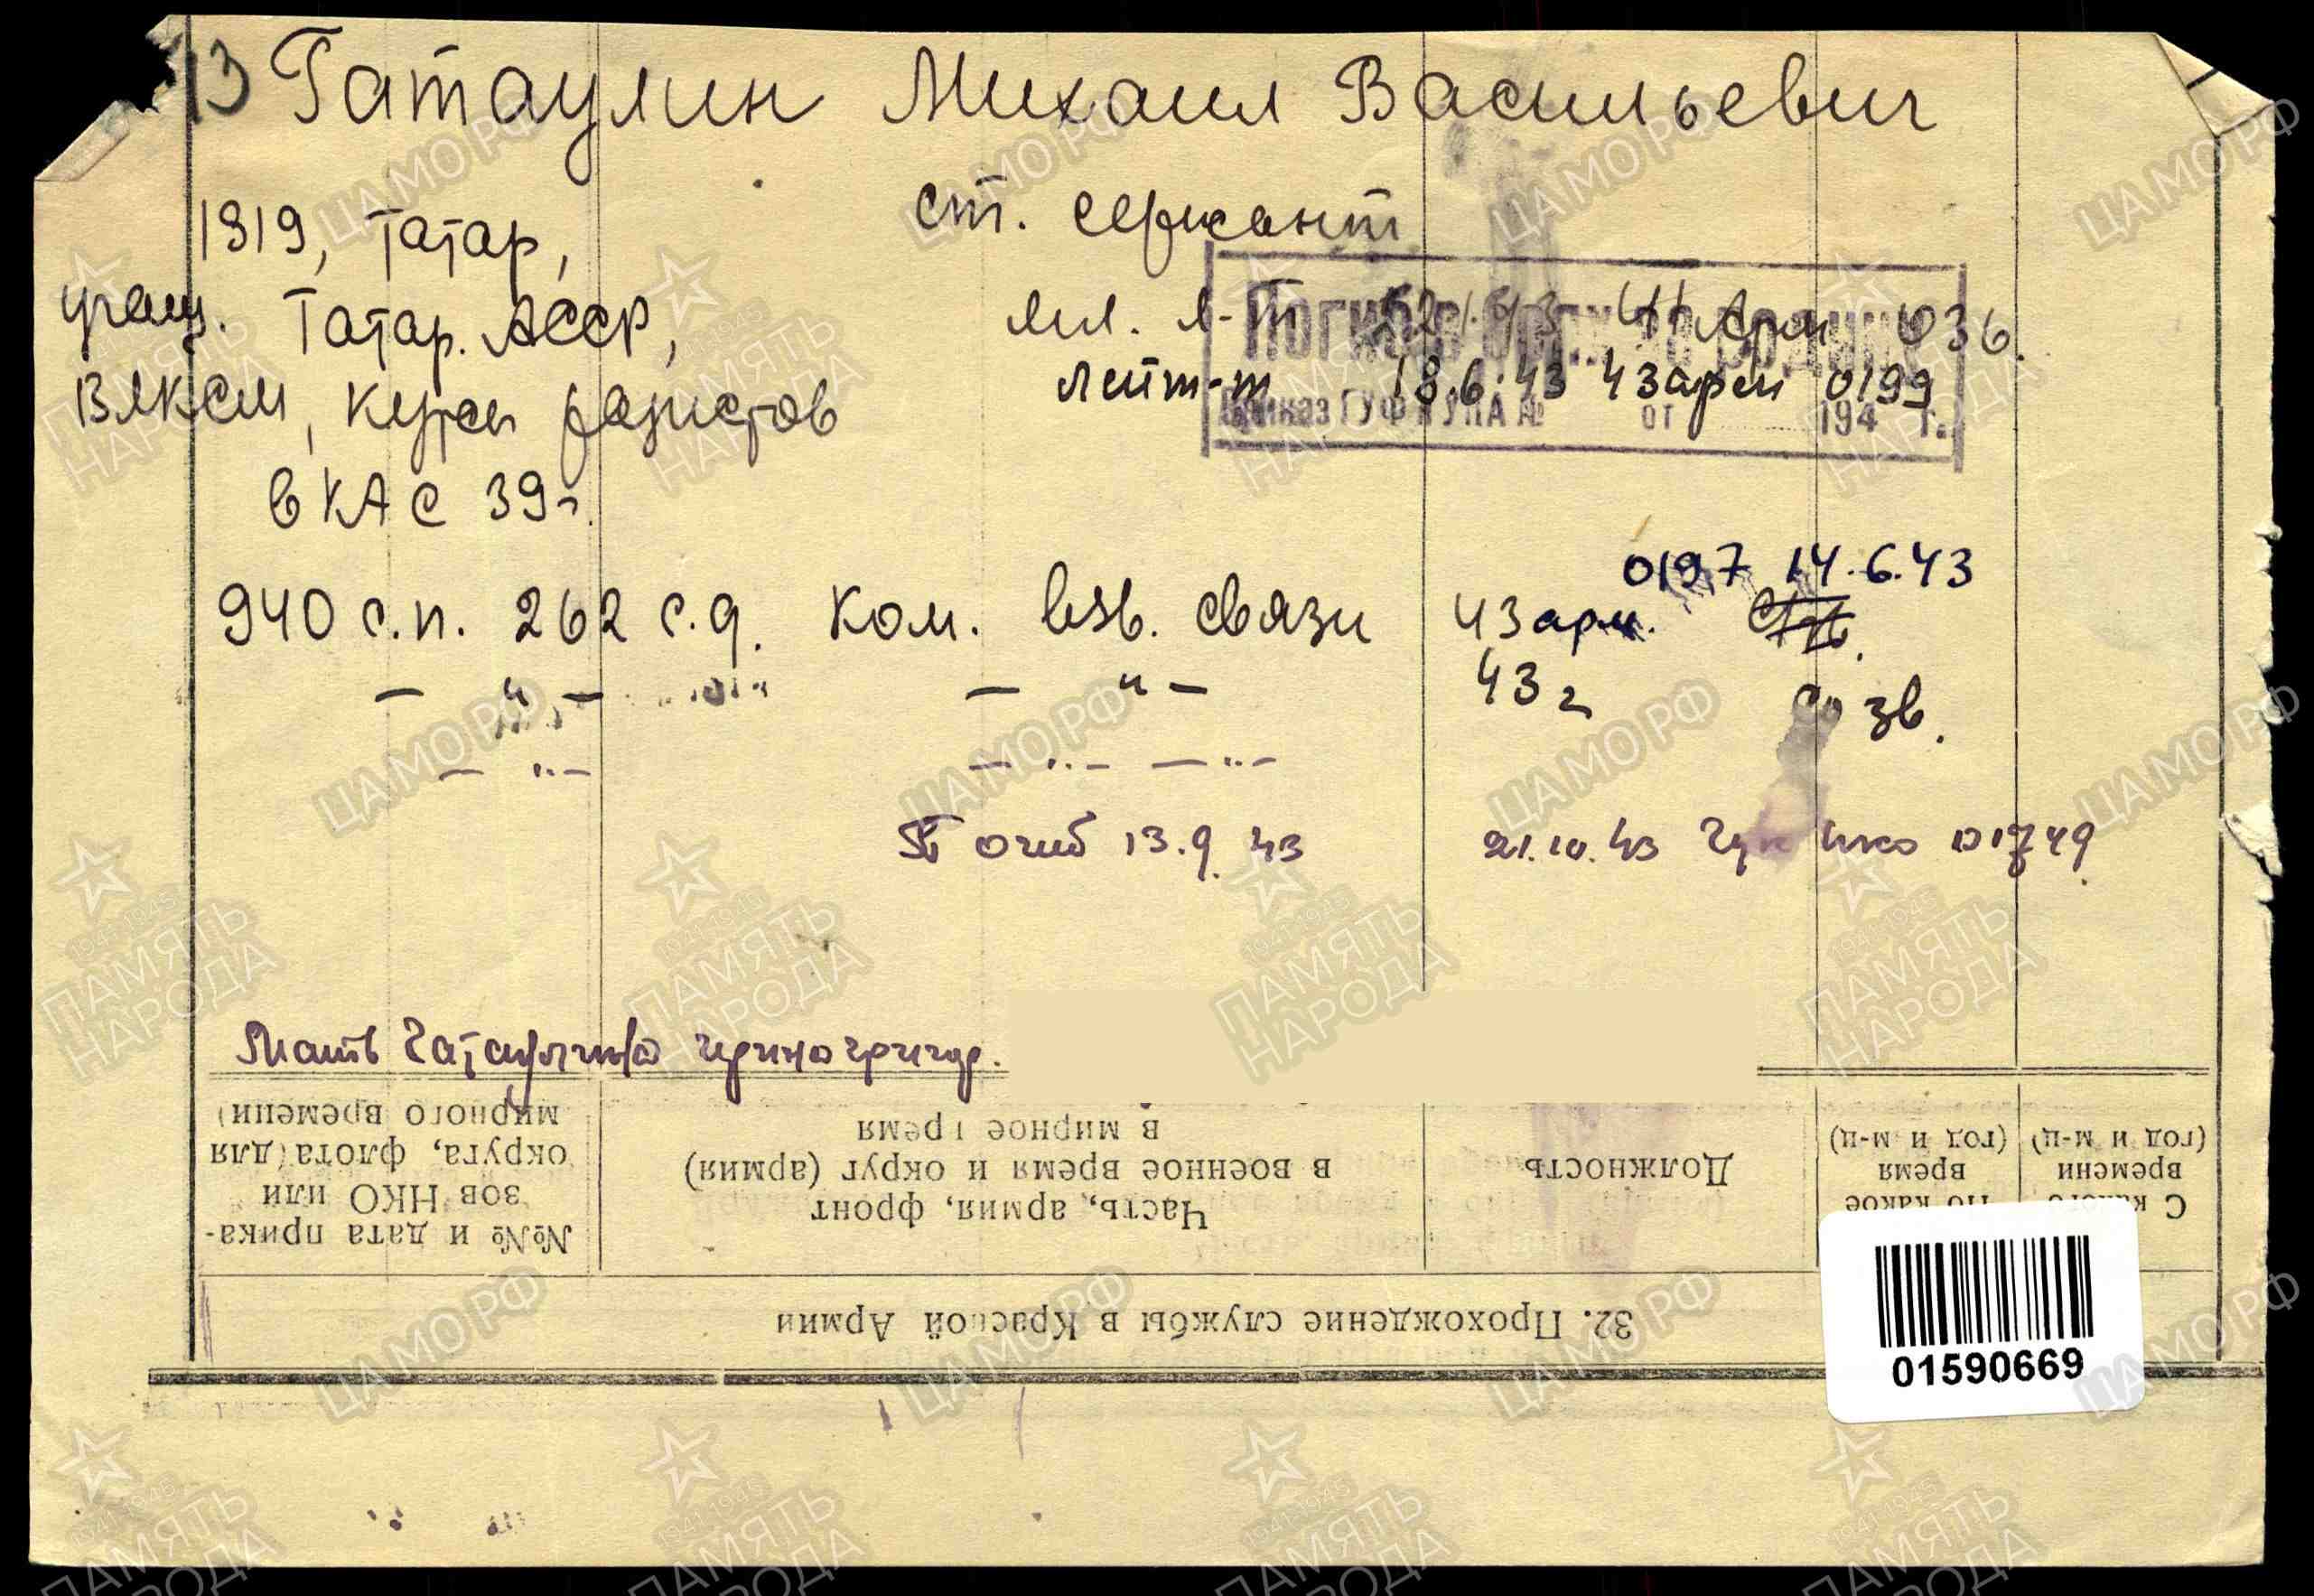 13 Гатаулин Михаил Васильевич
1919, татар, ст. сержант
урож. Татар. АССР, мл. л-т 43 036.
Погиб в боях за родину
ВЛКСМ, курсы радистов лейт-т 18.6.43 43 арм 0199
Приказ ГУФ КУКА № от 194 г.
в КА с 39 г.
0197 14.6.43
940 с.п. 262 с.д. ком. взв. связи 43 арм.
— " — — " — 43 г со зв.
— " — — " — — " —
Погиб 13.9.43 21.10.43 ГУК НКО 01749
Мать Гатаулина
32. Прохождение службы в Красной Армии
С какого времени (год и м-ц)
По какое время (год и м-ц)
Должность
Часть, армия, фронт
в военное время и округ (армия)
в мирное время
№№ и дата прика-
зов НКО или
округа, флота (для
мирного времени)
01590669
ЦАМО РФ
1941-1945
ПАМЯТЬ
НАРОДА